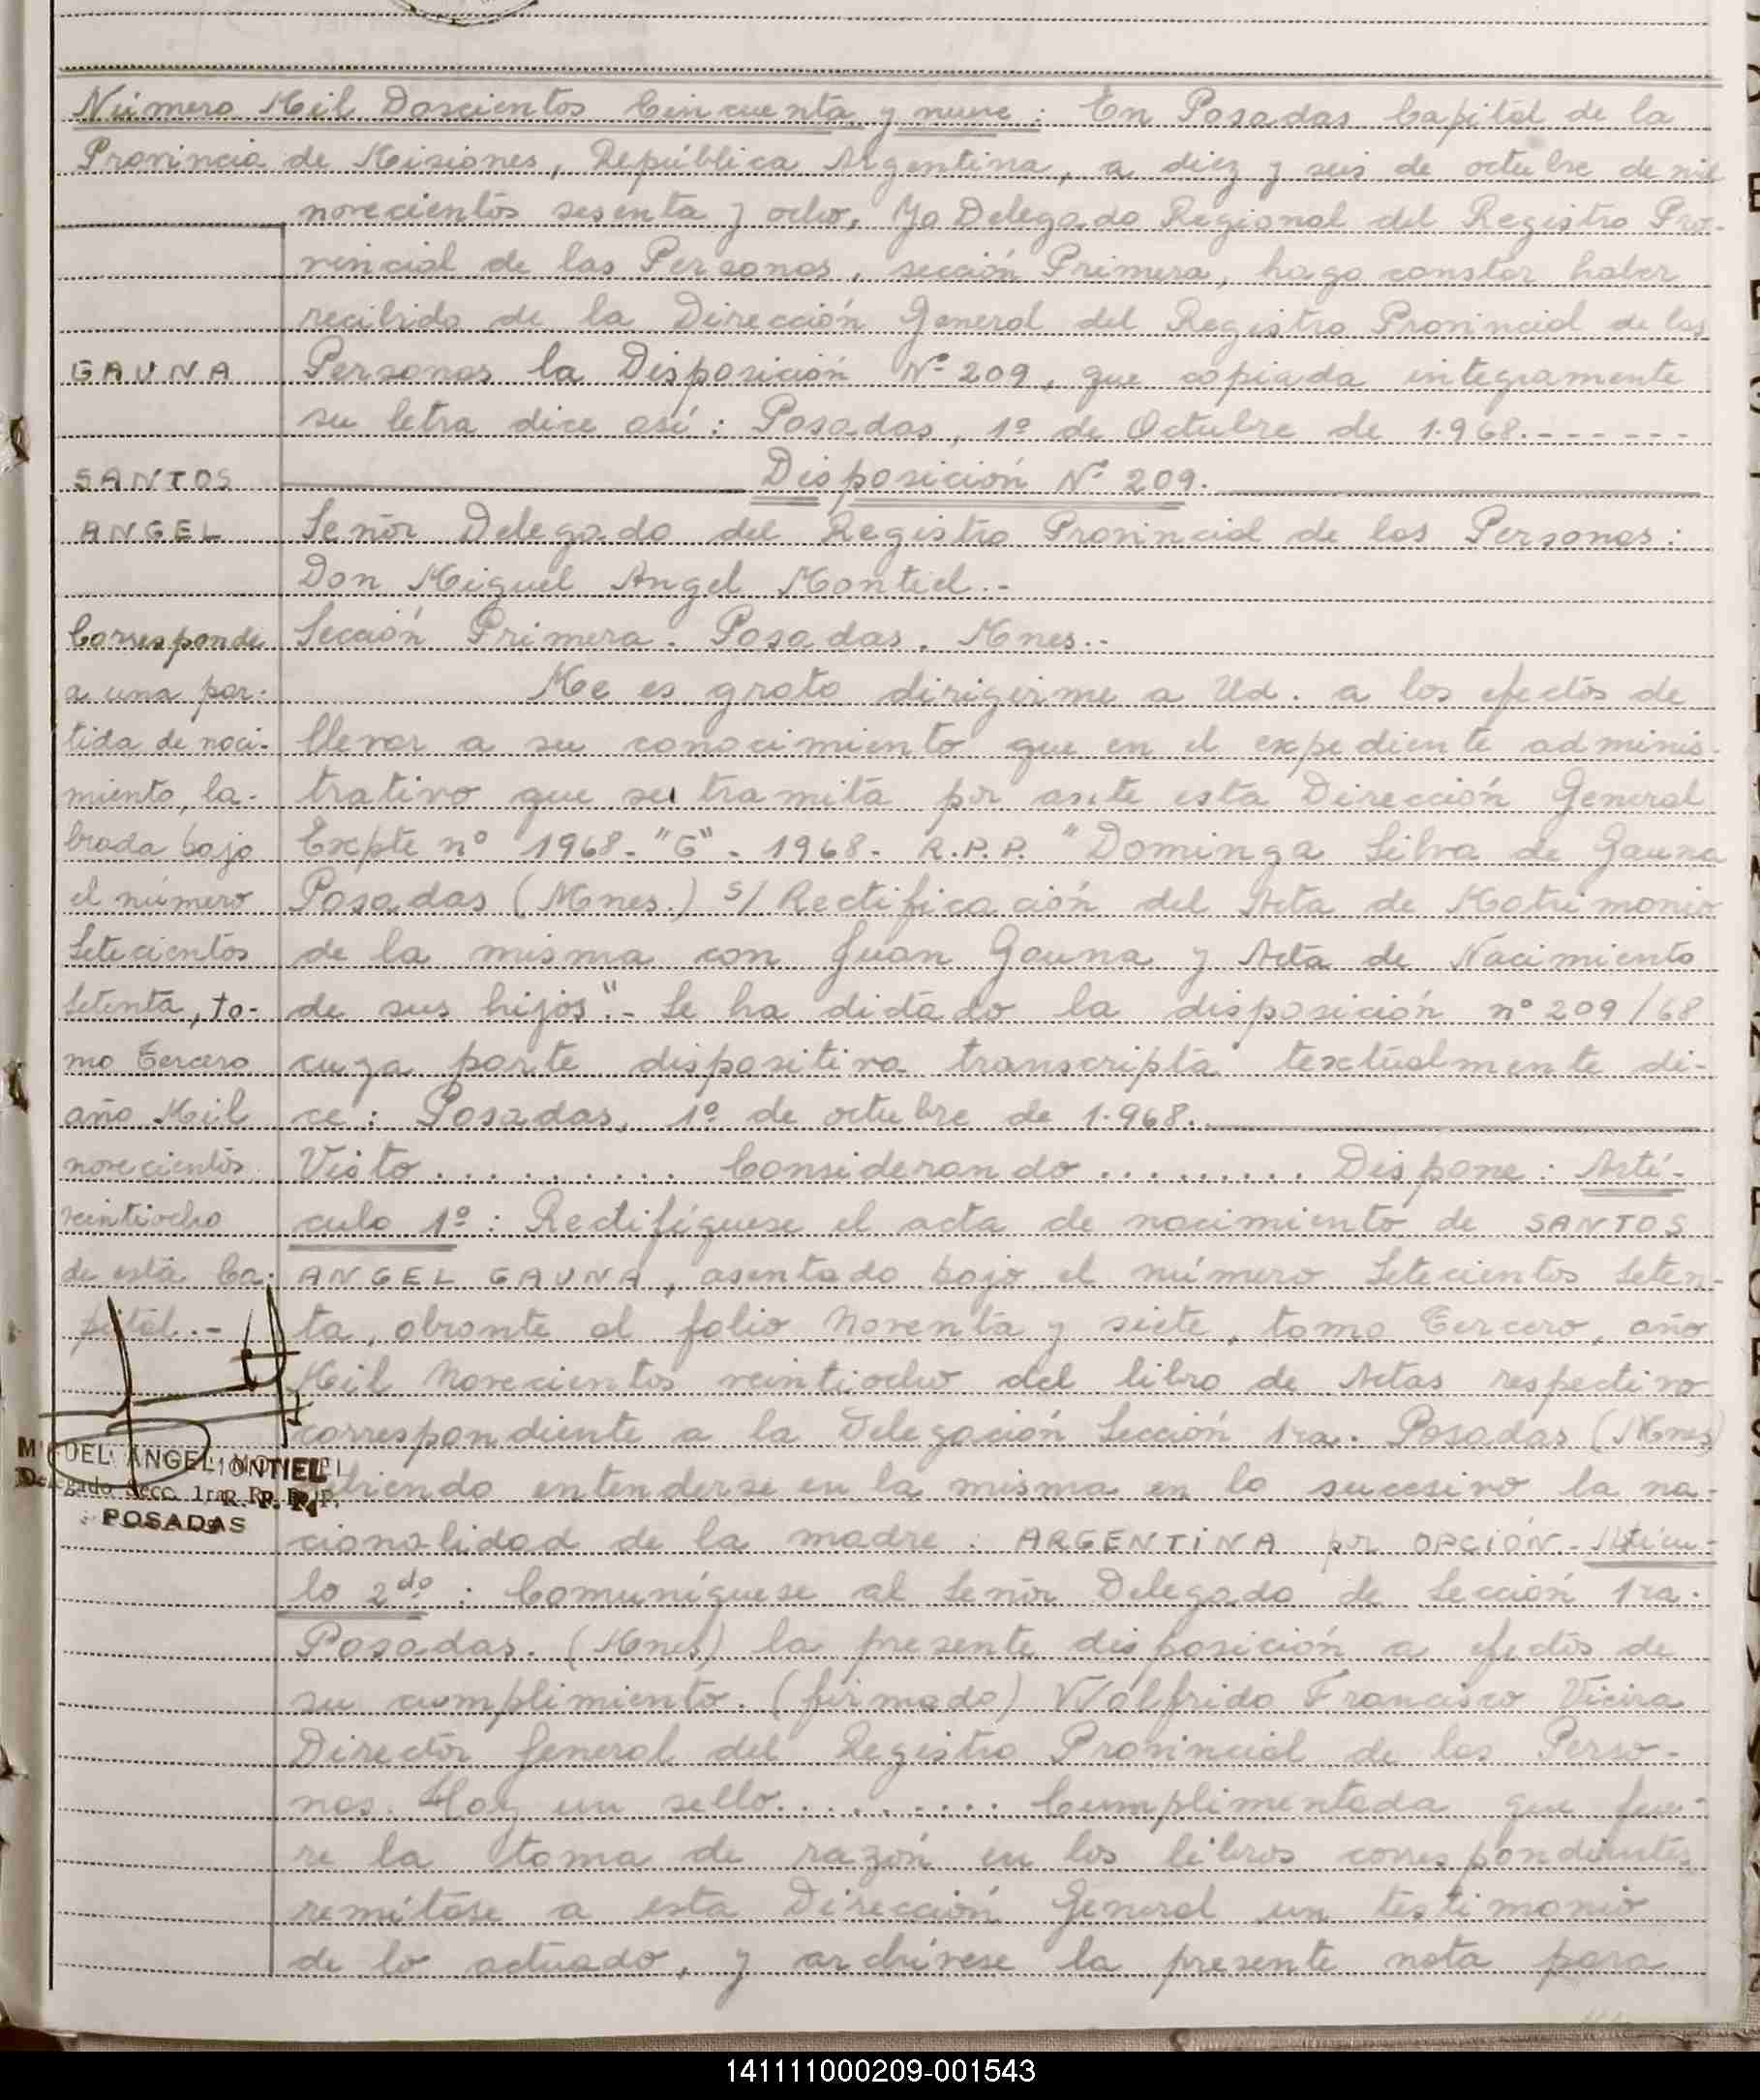 Número Mil Doscientos Cincuenta y nueve: En Posadas Capital de la
Provincia de Misiones, República Argentina, a diez y seis de octubre de mil
novecientos sesenta y ocho, Yo Delegado Regional del Registro Pro-
vincial de las Personas, sección Primera, hago constar haber
recibido de la Dirección General del Registro Provincial de las
Personas la Disposición Nº 209, que copiada integramente
su letra dice así: Posadas, 1º de Octubre de 1.968.- - - - - -
Disposición Nº 209.
Señor Delegado del Registro Provincial de las Personas:
Don Miguel Angel Montiel.-
Sección Primera. Posadas. Mnes.-
Me es grato dirigirme a Ud. a los efectos de
llevar a su conocimiento que en el expediente adminis-
trativo que se tramita por ante esta Dirección General
Expte nº 1968-"G"- 1968- R.P.P. "Dominga Silva de Gauna
Posadas (Mnes.) s/ Rectificación del Acta de Matrimonio
de la misma con Juan Gauna y Acta de Nacimiento
de sus hijos".- Se ha dictado la disposición nº 209/68
cuya parte dispositiva transcripta textualmente di-
ce: Posadas, 1º de octubre de 1.968.
Visto.......... Considerando......... Dispone: Artí-
culo 1º: Rectifíquese el acta de nacimiento de SANTOS
ANGEL GAUNA, asentado bajo el número Setecientos Seten-
ta, obrante al folio Noventa y siete, tomo Tercero, año
Mil Novecientos veintiocho del libro de Actas respectivo
correspondiente a la Delegación Sección 1ra. Posadas (Mnes)
biendo entenderse en la misma en lo sucesivo la na-
cionalidad de la madre: ARGENTINA por OPCIÓN.- Artícu-
lo 2do: Comuníquese al Señor Delegado de Sección 1ra.
Posadas. (Mnes) la presente disposición a efectos de
su cumplimiento. (firmado) Walfrido Francisco Vieira
Director General del Registro Provincial de las Perso-
nas. Hay un sello.......... Cumplimentada que fue-
re la toma de razón en los libros correspondientes
remítase a esta Dirección General un testimonio
de lo actuado, y archívese la presente nota para
GAUNA
SANTOS
ANGEL
Corresponde
a una par-
tida de naci-
miento, la-
brada bajo
el número
Setecientos
Setenta, to-
mo Tercero
año Mil
novecientos
veintiocho
de esta Ca-
pital.-
MIGUEL ANGEL MONTIEL
Delegado Secc. 1ra. R. P. P.
POSADAS
141111000209-001543